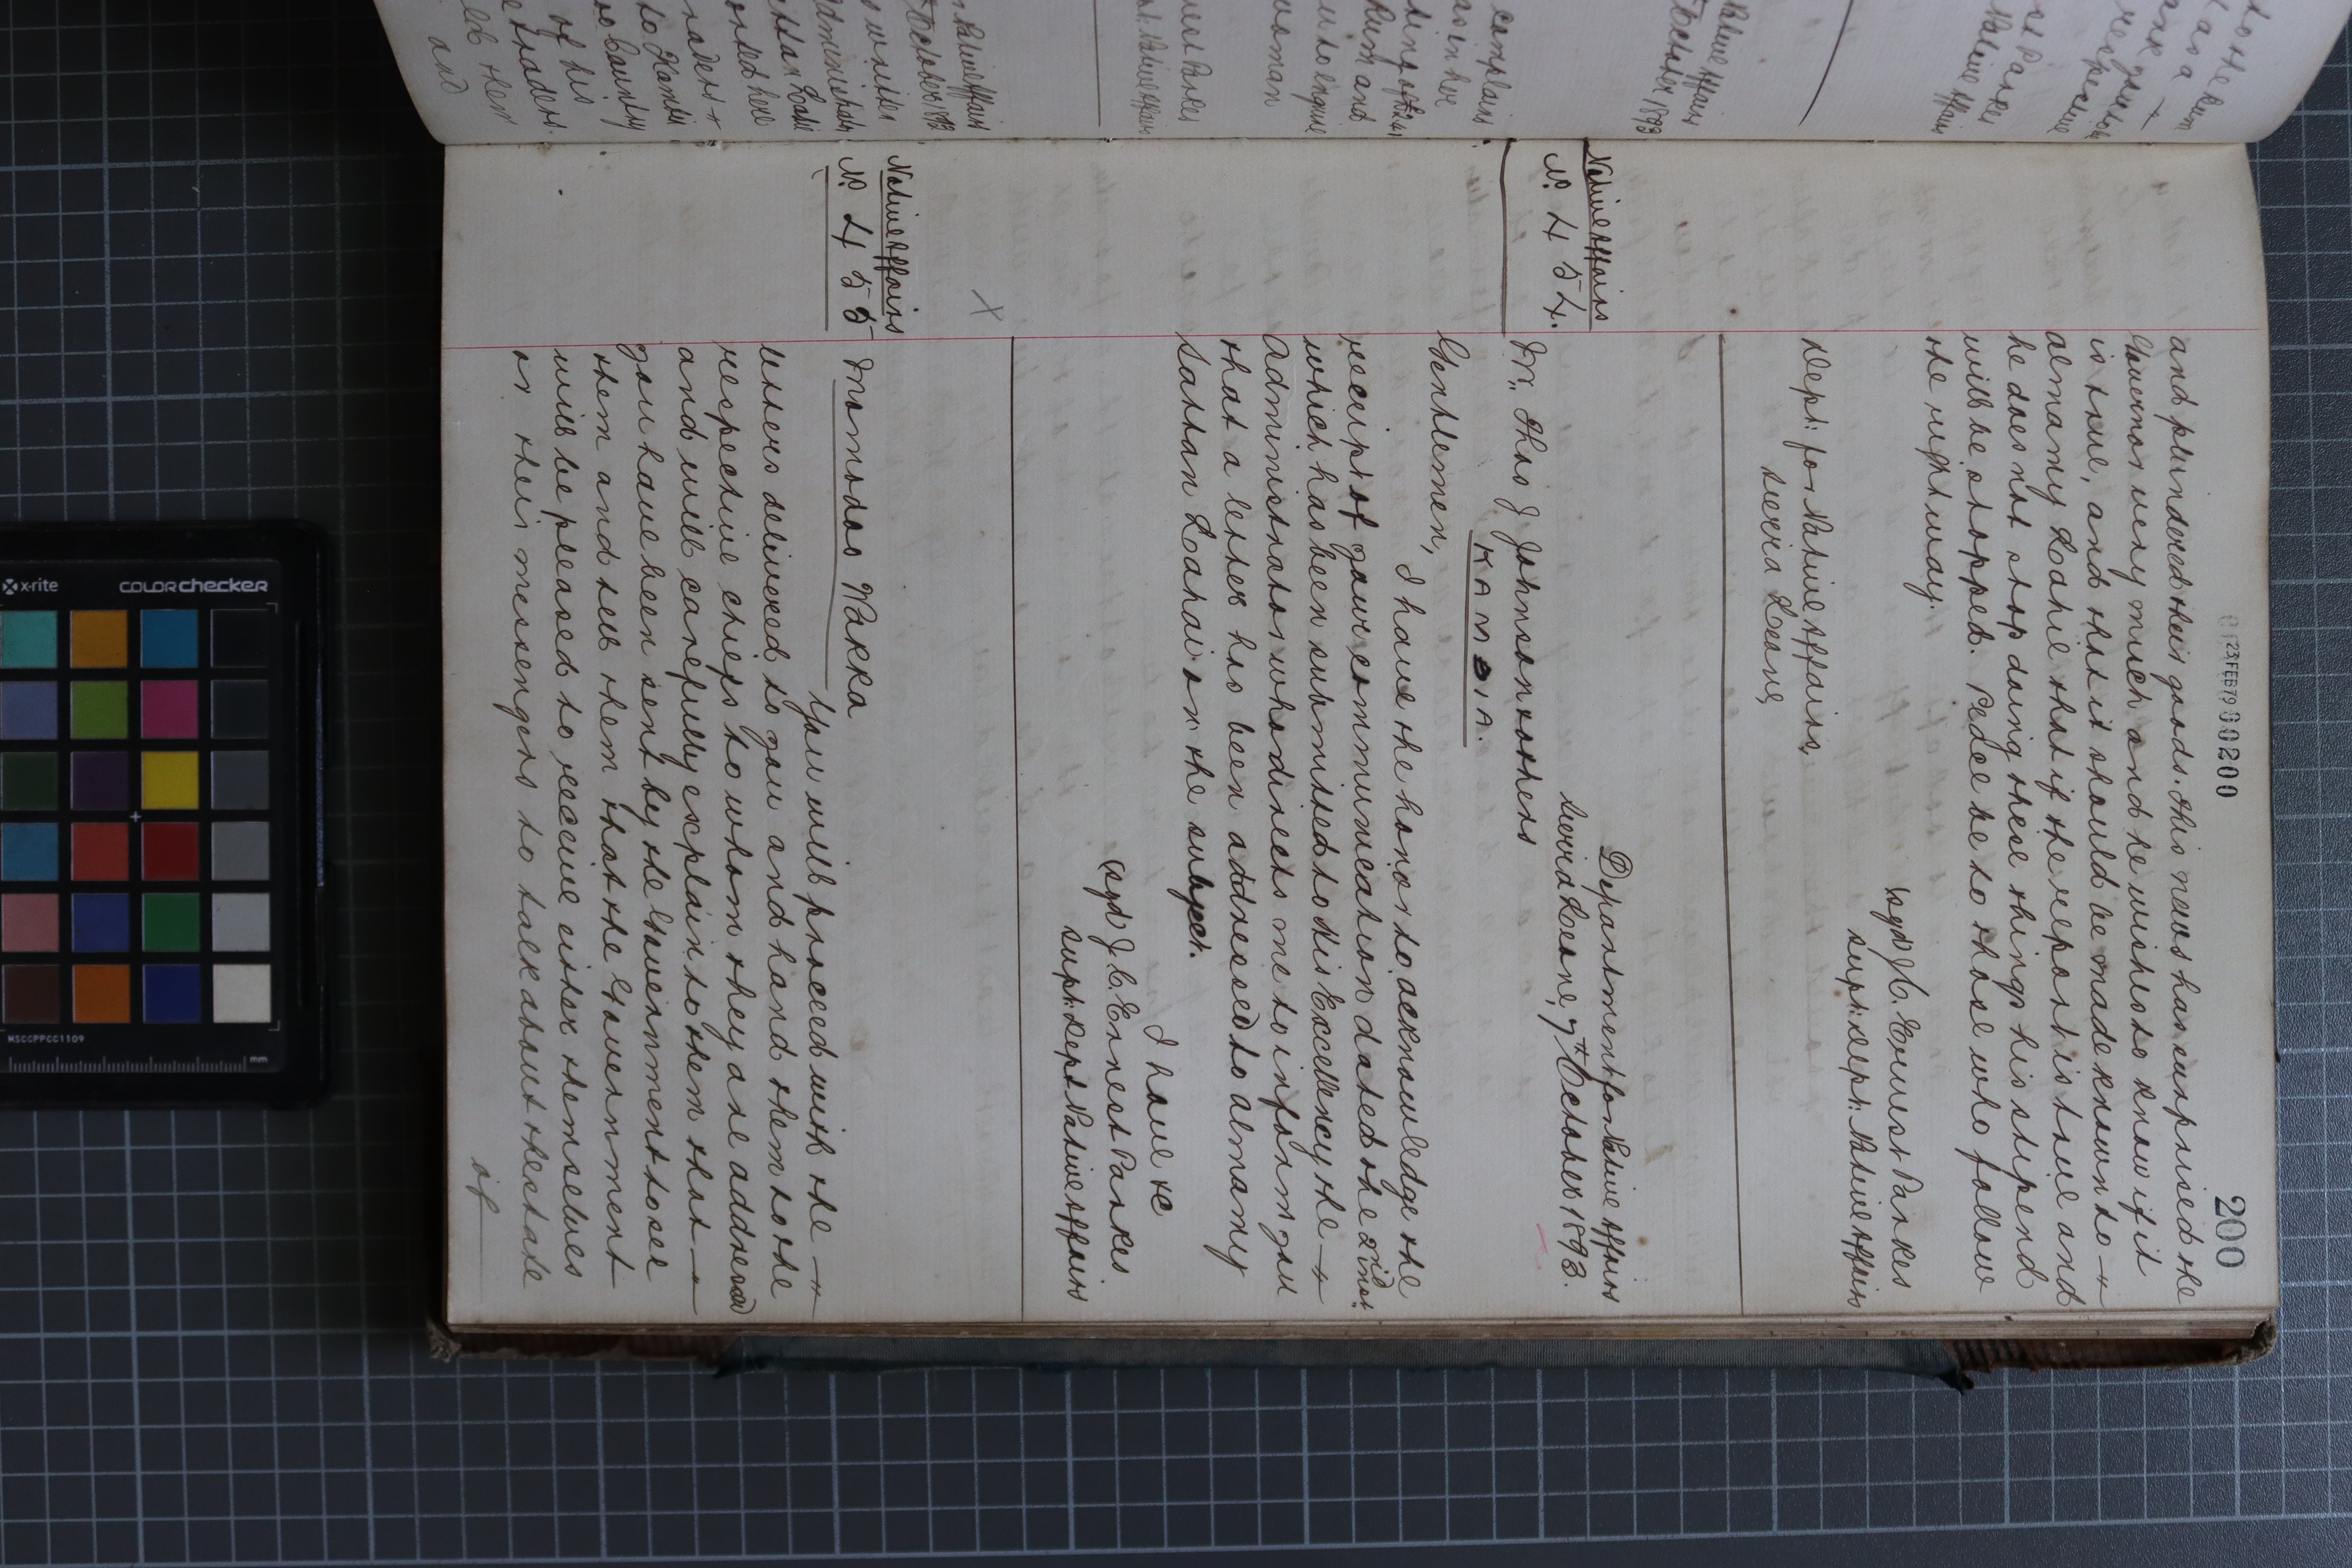 023FEB79 00200
200
and plundered their goods. This news has surprised the
Governor very much and he wishes to know if it
is true, and that it should be made known to
Almamy Lahie that if the report is true and
he does not stop doing these things his stipend
will be stopped. Peace be to those who follow
the right way.
(sgd) J.C. Ernest Parkes
Supt: Dept: Native Affairs
Dept: for Native Affairs,
Sierra Leone,
Native Affairs
No. 454.
Department for Native Affairs
Sierra Leone, 7th October 1893.
Mr. Thos J Johnson & others
KAMBIA.
Gentlemen,
I have the honor to acknowledge the
receipt of your communication dated the 2nd inst:
which has been submitted to His Excellency the
Administrator who directs me to inform you
that a letter has been addressed to Almamy
Sattan Lahai on the subject.
I have &c
(sgd) J.C. Ernest Parkes
Supt: Dept Native Affairs
Native Affairs
No. 455
X
Momodoo Wakka
You will proceed with the
letters delivered to you and hand them to the
respective chiefs to whom they are addressed
and will carefully explain to them that
you have been sent by the Government to see
them and tell them that the Government
will be pleased to receive either themselves
or their messengers to talk about the state
of
x-rite
colorchecker
MSCCPPCC1109
mm